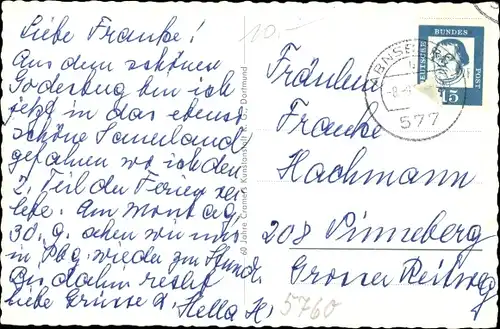 Liebe Frauke!
Aus dem schönen
Godesburg bin ich
jetzt in das ebenso
schöne Sauerland
gefahren wo ich den
2. Teil der Ferien ver
lebe. Am Montag
30. 9. sehen wir uns
in Pbg. wieder zur Stunde
Bis dahin recht
liebe Grüsse Hella H.
60 Jahre Cramers Kunstanstalt K. G., Dortmund
10.-
ARNSBERG
577
DEUTSCHE BUNDES POST
15
Fräulein
Frauke
Hachmann
208 Pinneberg
Grosser Reitweg
5760